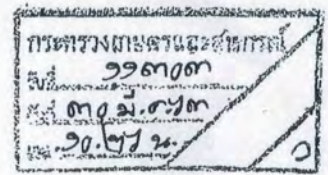 กระทรวงเกษตรและสหกรณ์
รับที่ ๑๑๓๐๓
วันที่ ๓๐ มี.ค.
เวลา ๑๐.๒๖ น.